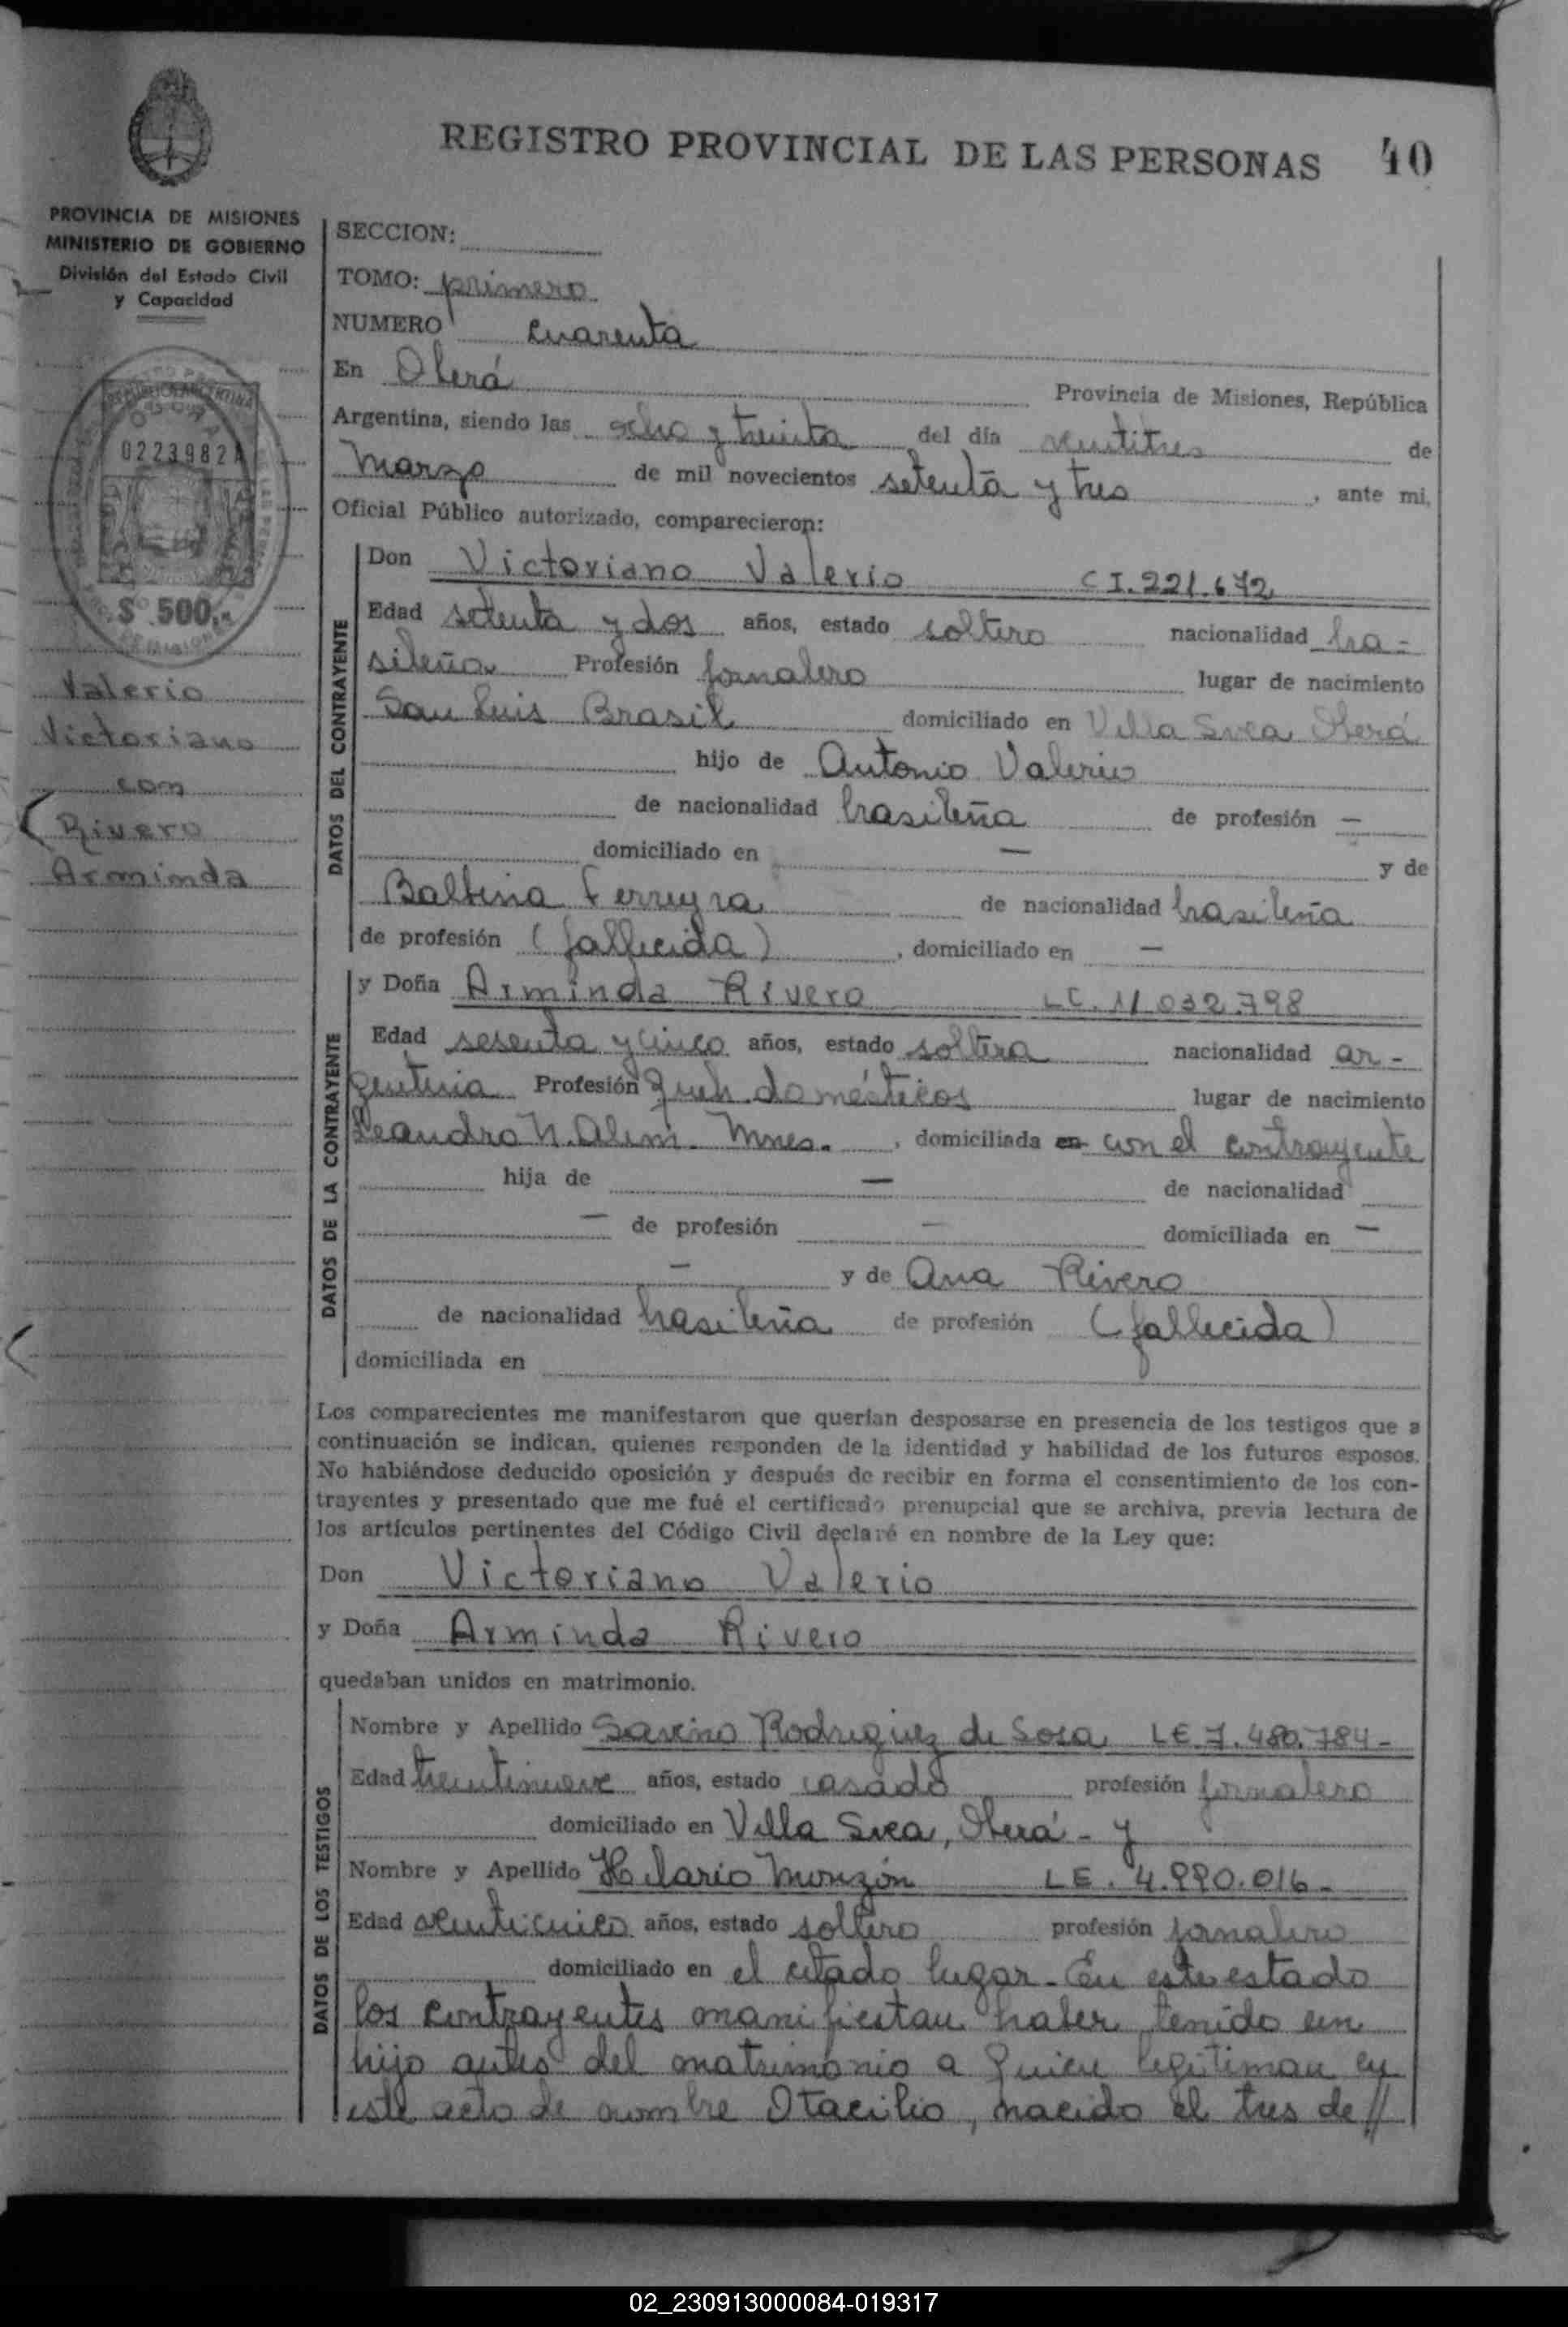 REGISTRO PROVINCIAL DE LAS PERSONAS 40
PROVINCIA DE MISIONES
MINISTERIO DE GOBIERNO
División del Estado Civil
y Capacidad
REPUBLICA ARGENTINA
0223982
$ 500.-
Valerio
Victoriano
con
Rivero
Arminda
SECCION:
TOMO: primero
NUMERO cuarenta
En Oberá Provincia de Misiones, República
Argentina, siendo las ocho y treinta del día veintitres de
Marzo de mil novecientos setenta y tres, ante mi,
Oficial Público autorizado, comparecieron:
DATOS DEL CONTRAYENTE
Don Victoriano Valerio C I. 221.672
Edad setenta y dos años, estado soltero nacionalidad bra-
sileña Profesión jornalero lugar de nacimiento
San Luis Brasil domiciliado en Villa Svea Oberá
hijo de Antonio Valerio
de nacionalidad brasileña de profesión —
domiciliado en — y de
Balbina Ferreyra de nacionalidad brasileña
de profesión (fallecida), domiciliado en —
DATOS DE LA CONTRAYENTE
y Doña Arminda Rivero LC. 11.032.798
Edad sesenta y cinco años, estado soltera nacionalidad ar-
gentina Profesión Queh. domésticos lugar de nacimiento
Leandro N. Alem. Mnes., domiciliada en con el contrayente
hija de — de nacionalidad
— de profesión — domiciliada en —
— y de Ana Rivero
de nacionalidad brasileña de profesión (fallecida)
domiciliada en
Los comparecientes me manifestaron que querían desposarse en presencia de los testigos que a
continuación se indican, quienes responden de la identidad y habilidad de los futuros esposos.
No habiéndose deducido oposición y después de recibir en forma el consentimiento de los con-
trayentes y presentado que me fué el certificado prenupcial que se archiva, previa lectura de
los artículos pertinentes del Código Civil declaré en nombre de la Ley que:
Don Victoriano Valerio
y Doña Arminda Rivero
quedaban unidos en matrimonio.
DATOS DE LOS TESTIGOS
Nombre y Apellido Savino Rodriguez de Sosa LE 7.480.784-
Edad treintinueve años, estado casado profesión jornalero
domiciliado en Villa Svea, Oberá - y
Nombre y Apellido Hilario Monzón LE. 4.990.016-
Edad veinticinco años, estado soltero profesión jornalero
domiciliado en el citado lugar - En este estado
los contrayentes manifiestan haber tenido un
hijo antes del matrimonio a quien legitiman en
este acto de nombre Otacilio, nacido el tres de //
02_230913000084-019317